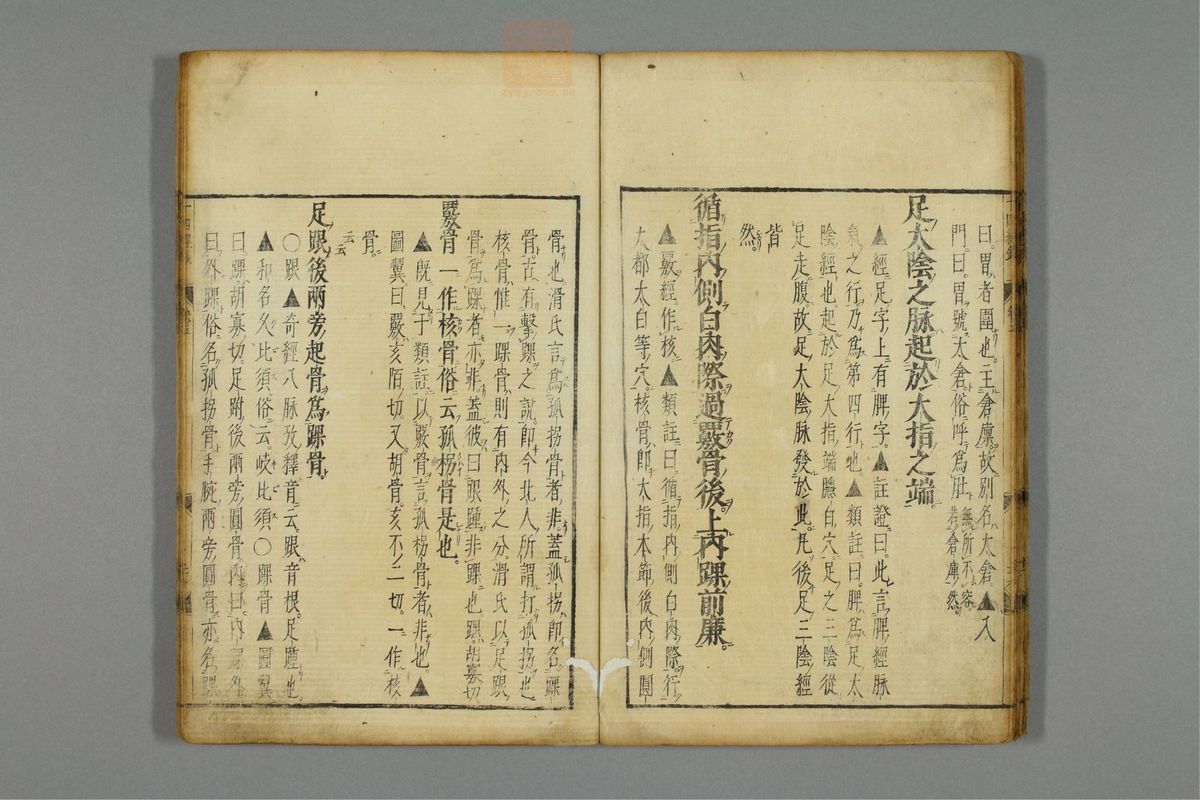 曰胃者圍也主倉廩故別名太倉▲入
門曰胃號太倉俗呼爲肚無所不容若倉庫然
足太陰之脉起於大指之端
▲經足字上有脾字▲註證曰此言脾經脉
氣之行乃爲第四行也▲類註曰脾爲足太
陰經也起於足大指端隱白穴足之三陰從
足走腹故足太陰脉發於此凡後足三陰經
皆然
循指内側白肉際過覈骨後上内踝前廉
▲覈經作核▲類註曰循指内側白肉際行
大都太白等穴核骨卽大指本節後内側圓
骨也滑氏言爲孤拐骨者非蓋孤拐卽名踝
骨古有擊踝之說卽今北人所謂打孤拐也
核骨惟一踝骨則有内外之分滑氏以足跟
骨爲踝者亦非蓋彼曰跟踵非踝也踝胡寡切
覈骨一作核骨俗云孤拐骨是也
▲旣見于類註以覈骨言孤拐骨者非也▲
圖翼曰覈亥陌切又胡骨亥不二切一作核
骨云云
足跟後兩旁起骨爲踝骨
○跟▲奇經八脉攷釋音云跟音根足踵也
▲和名久比須俗云岐比須○踝骨▲圖翼
曰踝胡寡切足跗後兩旁圓骨内曰内踝外
曰外踝俗名孤拐骨手腕兩旁圓骨亦名踝